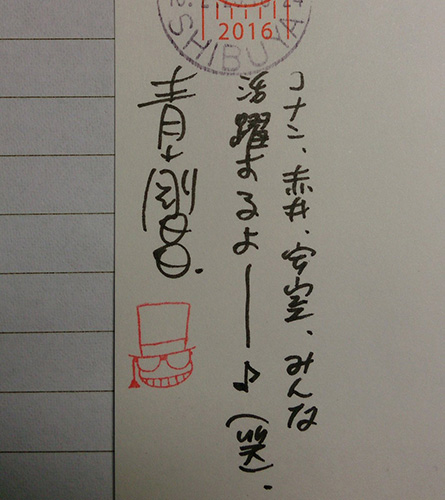 SHIBUYA
2016
コナン、赤井、安室、みんな
活躍するよー♪(笑).
青山剛昌.